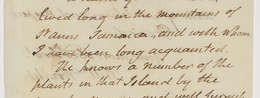 lived long in the mountains of
Jamaica, and with whom
I have been long acquainted.
He knows a number of the
plants in that Island by the
and well